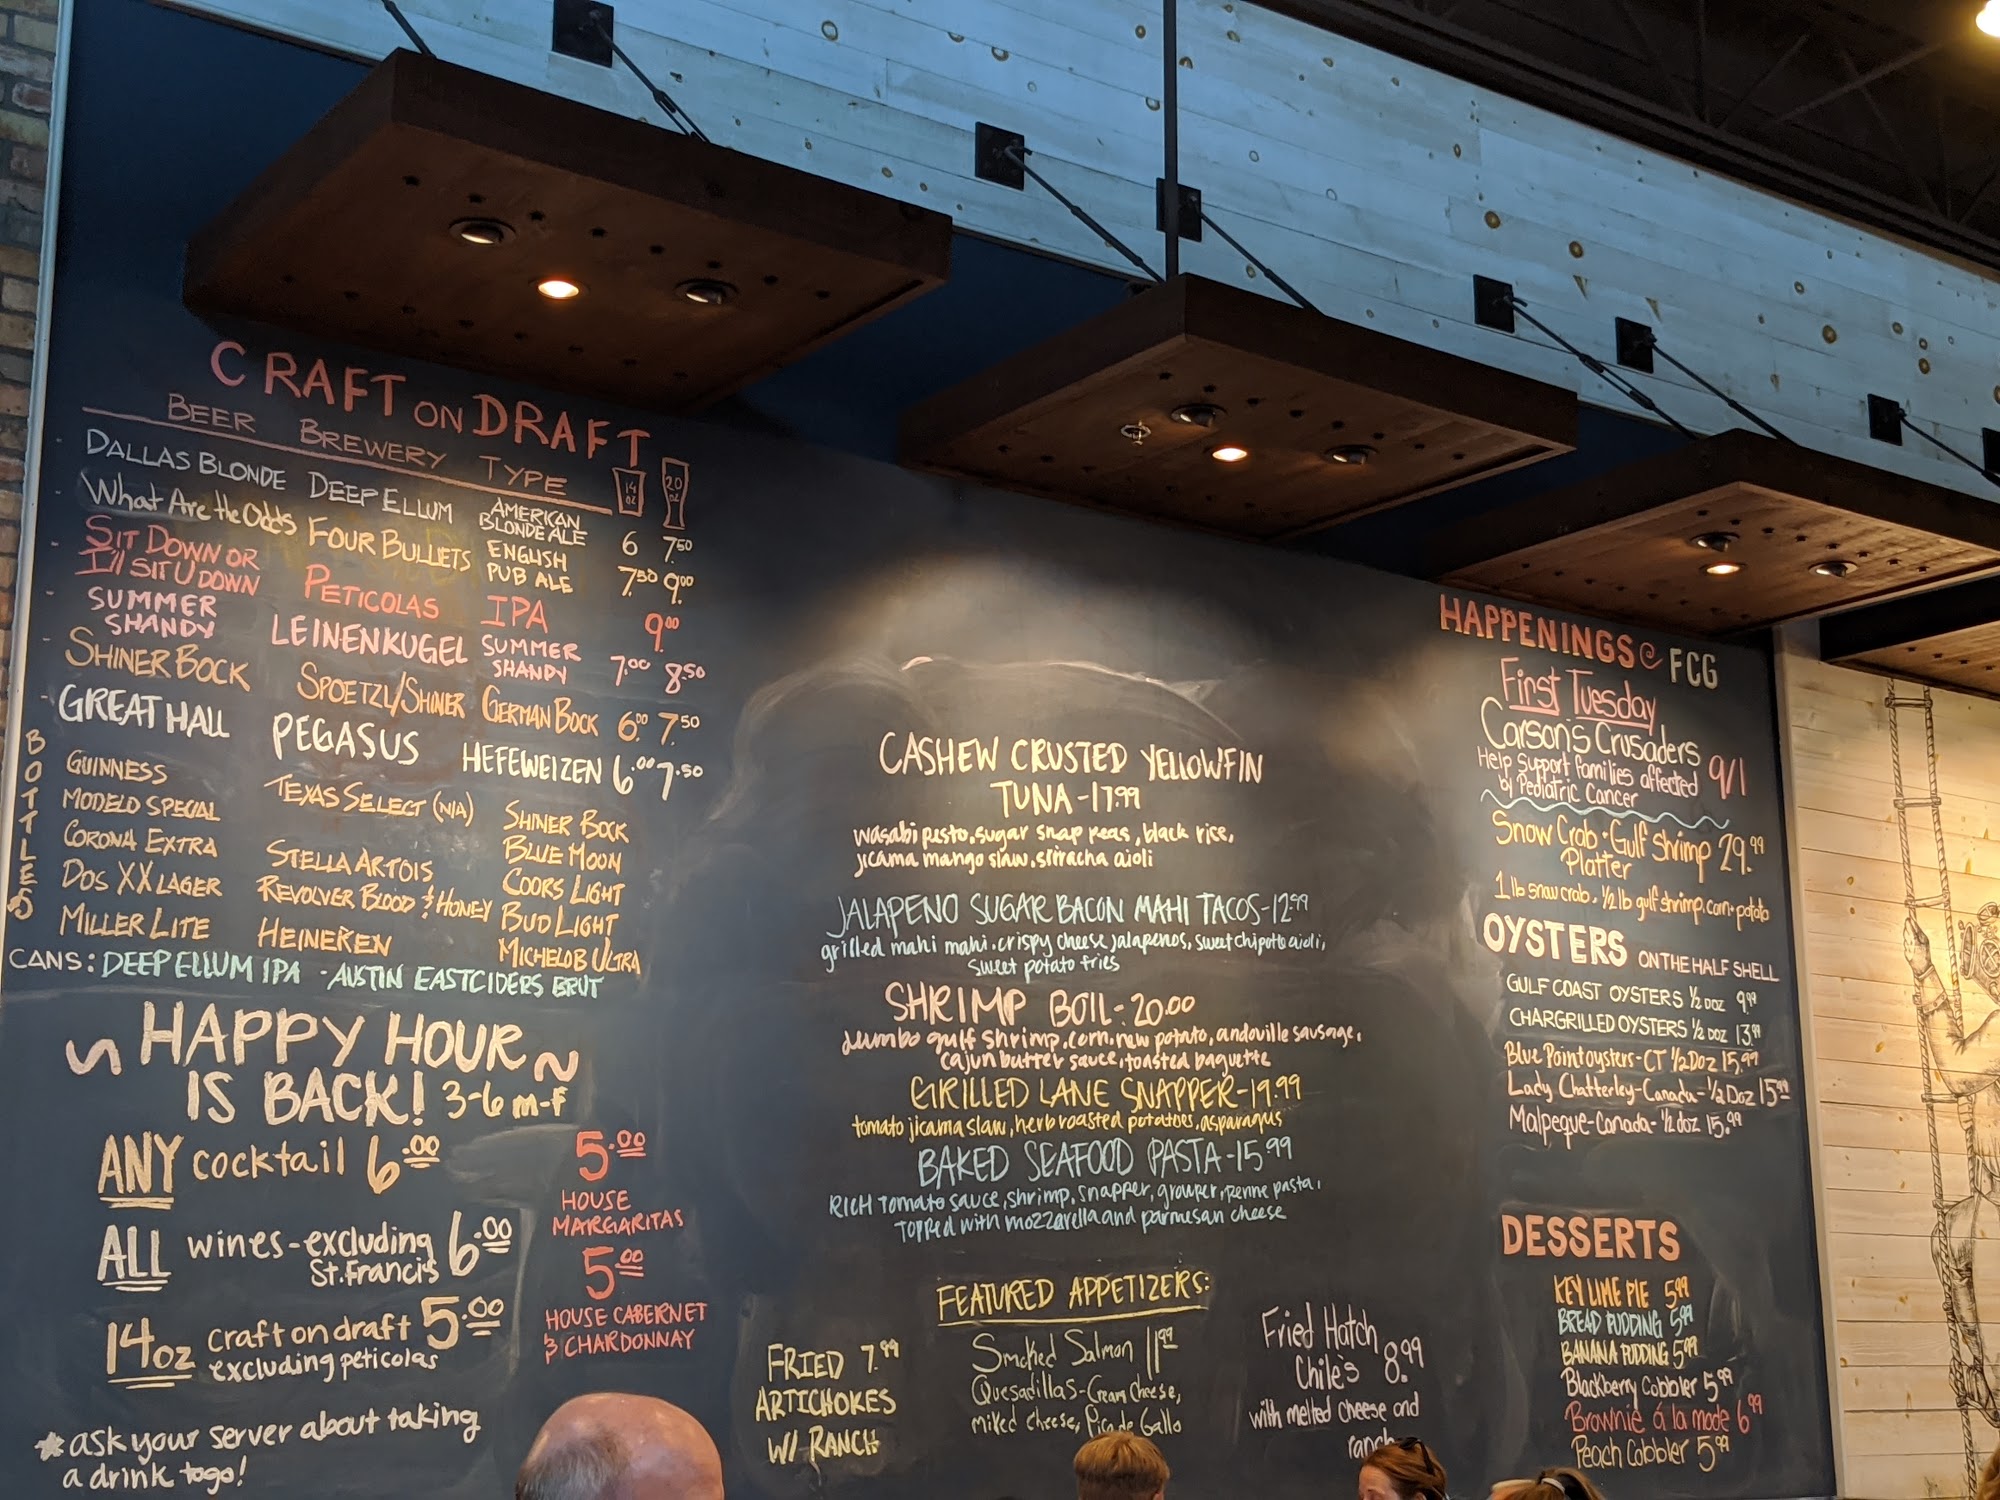 CRAFT ON DRAFT
BEER BREWERY TYPE 14 oz 20 oz
DALLAS BLONDE DEEP ELLUM AMERICAN BLONDE ALE 6 7.50
What Are the Odds FOUR BULLETS ENGLISH PUB ALE 7.50 9.00
SIT DOWN OR I'll SIT U DOWN PETICOLAS IPA 9.00
SUMMER SHANDY LEINENKUGEL SUMMER SHANDY 7.00 8.50
SHINER BOCK SPOETZL/SHINER GERMAN BOCK 6.00 7.50
GREAT HALL PEGASUS HEFEWEIZEN 6.00 7.50
BOTTLES
GUINNESS TEXAS SELECT (N/A) SHINER BOCK
MODELO SPECIAL BLUE MOON
CORONA EXTRA STELLA ARTOIS COORS LIGHT
DOS XX LAGER REVOLVER BLOOD & HONEY BUD LIGHT
MILLER LITE HEINEKEN MICHELOB ULTRA
CANS: DEEP ELLUM IPA - AUSTIN EASTCIDERS BRUT
HAPPY HOUR
IS BACK! 3-6 m-f
ANY cocktail 6.00
ALL wines - excluding St. Francis 6.00
14oz craft on draft 5.00
excluding peticolas
5.00
HOUSE
MARGARITAS
5.00
HOUSE CABERNET
& CHARDONNAY
*ask your server about taking
a drink togo!
CASHEW CRUSTED YELLOWFIN
TUNA - 17.99
wasabi pesto, sugar snap peas, black rice,
jicama mango slaw, sriracha aioli
JALAPENO SUGAR BACON MAHI TACOS - 12.99
grilled mahi mahi, crispy cheese jalapenos, sweet chipotle aioli,
sweet potato fries
SHRIMP BOIL - 20.00
Jumbo gulf shrimp, corn, new potato, andouille sausage,
cajun butter sauce, toasted baguette
GRILLED LANE SNAPPER - 19.99
tomato jicama slaw, herb roasted potatoes, asparagus
BAKED SEAFOOD PASTA - 15.99
RICH Tomato sauce, shrimp, snapper, grouper, penne pasta,
TOPPED with mozzarella and parmesan cheese
FEATURED APPETIZERS:
FRIED 7.99
ARTICHOKES
W/ RANCH
Smoked Salmon 11.99
Quesadillas - Cream Cheese,
mixed cheese, Pico de Gallo
Fried Hatch
Chile's 8.99
with melted cheese and
ranch
HAPPENINGS @ FCG
First Tuesday
Carson's Crusaders 9/1
Help Support families affected
by Pediatric Cancer
Snow Crab · Gulf Shrimp 29.99
Platter
1 lb snow crab, 1/2 lb gulf shrimp, corn + potato
OYSTERS ON THE HALF SHELL
GULF COAST OYSTERS 1/2 DOZ 9.99
CHARGRILLED OYSTERS 1/2 DOZ 13.99
Blue Point oysters - CT 1/2 Doz 15.99
Lady Chatterley - Canada - 1/2 Doz 15.99
Malpeque - Canada - 1/2 doz 15.99
DESSERTS
KEY LIME PIE 5.99
BREAD PUDDING 5.99
BANANA PUDDING 5.99
Blackberry Cobbler 5.99
Brownie á la mode 6.99
Peach Cobbler 5.99